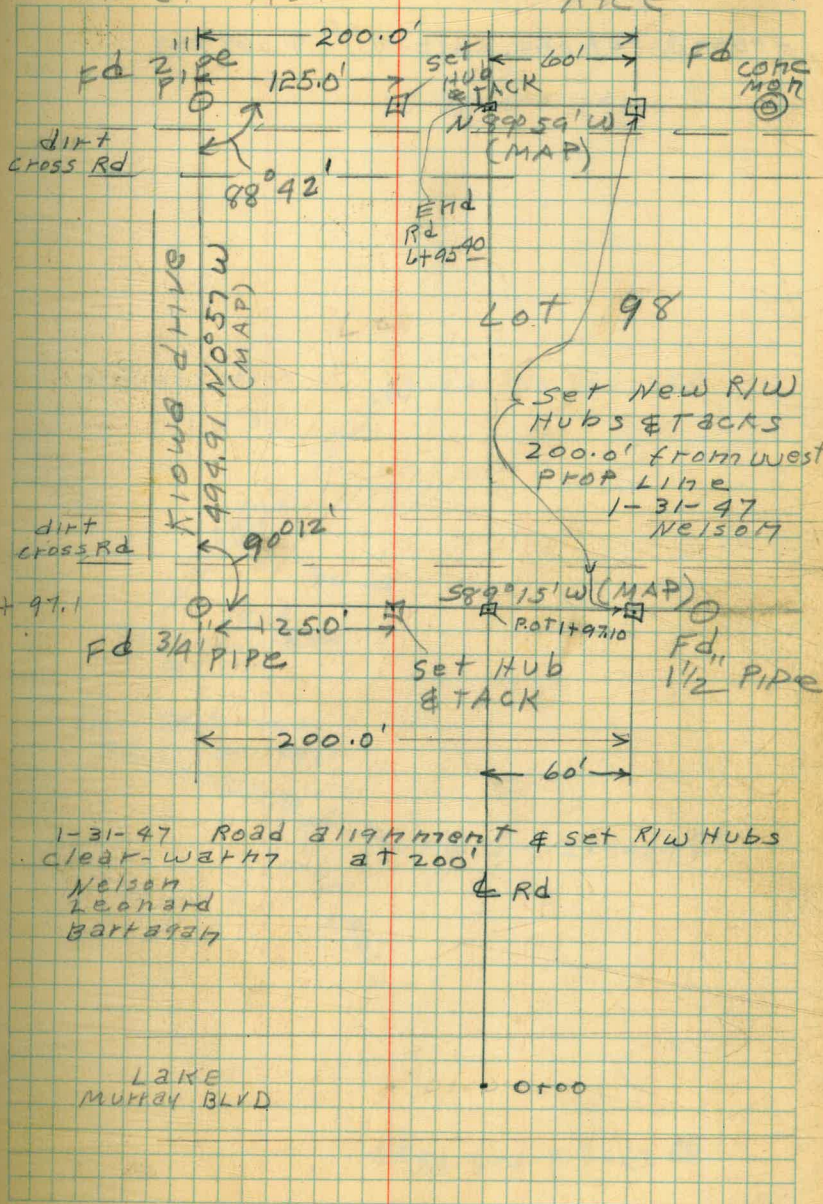 200.0'
Fd 2" pipe
125.0'
set Hub & TACK
60'
Fd conc mon
N 89° 59' W
(MAP)
dirt
cross Rd
88° 42'
End
Rd
6+95.40
Kiowa Drive
494.91 N0°57'W
(MAP)
Lot 98
Set New R/W
Hubs & Tacks
200.0' from west
Prop Line
1-31-47
Nelson
dirt
cross Rd
90°12'
+ 97.1
S89°15'W (MAP)
125.0'
P.O.T 1+97.10
Fd 3/4" PIPE
Set Hub
& TACK
Fd
1 1/2" PIPe
200.0'
60'
1-31-47 Road alignment & set R/W Hubs
clear-warm at 200'
Nelson
Leonard
₠ Rd
Lake
Murray BLVD
0+00